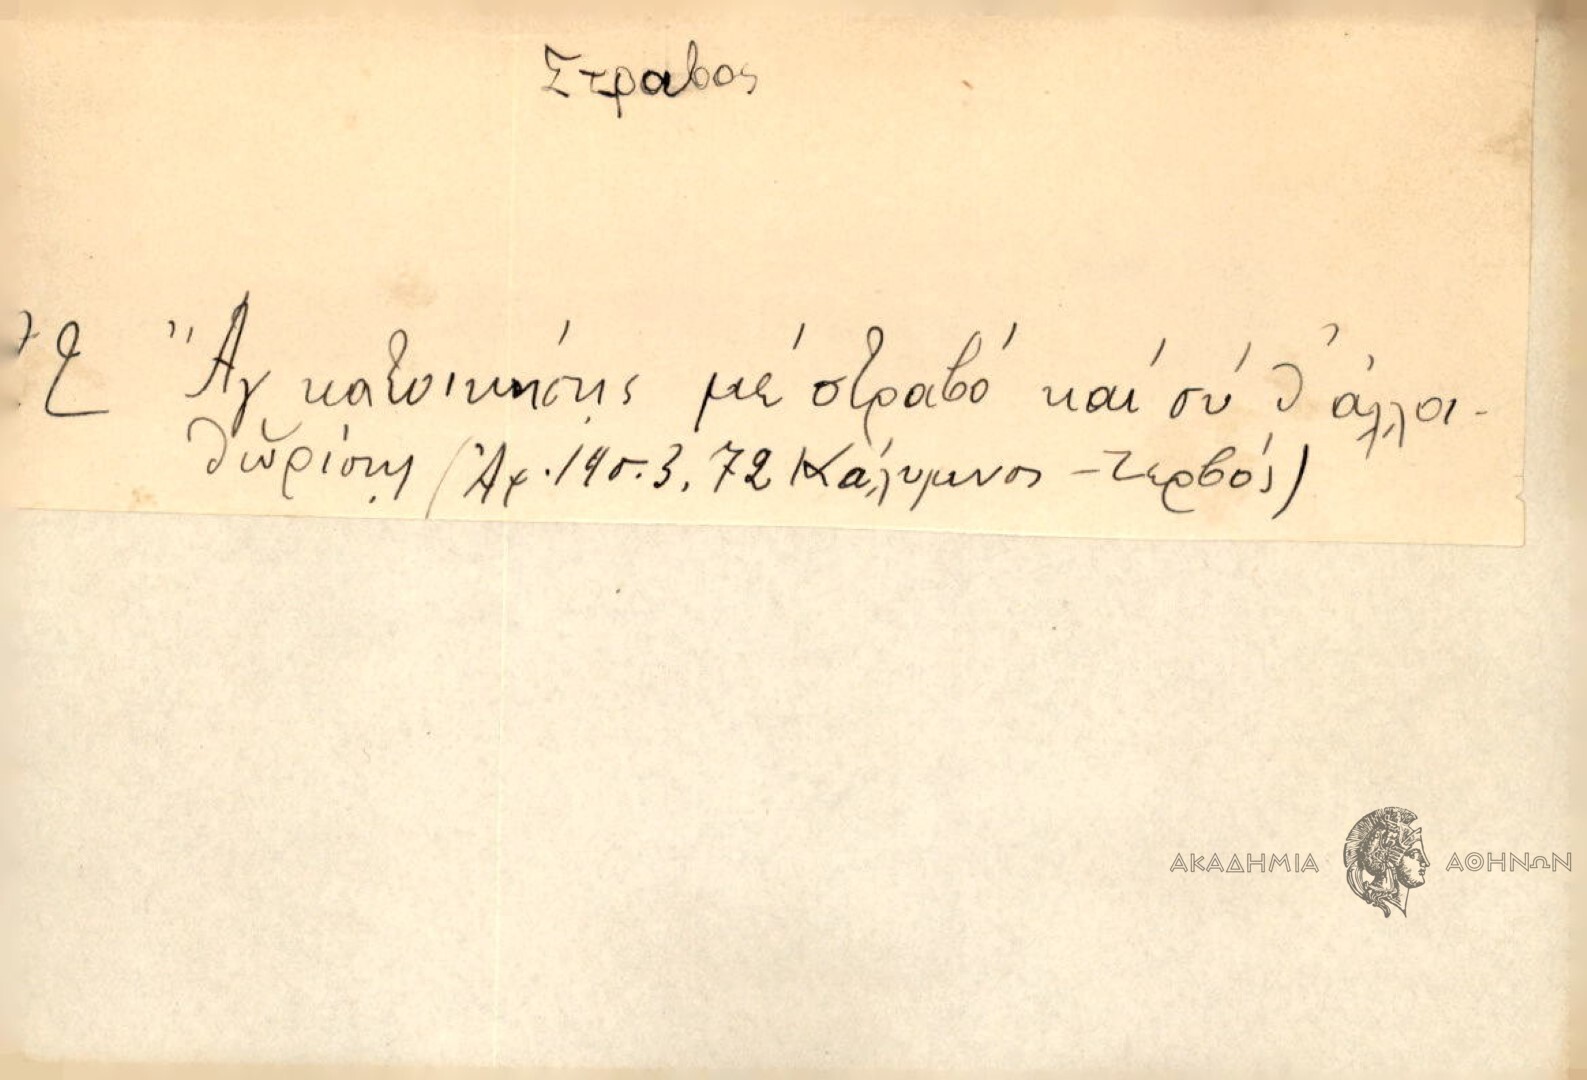 Στραβος
Ἂγ κατοικήσῃς μέ στραβό καί σύ θ' ἀλλοι-
θωρίσῃς (Ἀρ. 19 σ. 3, 72 Κάλυμνος - Ζερβός)
ΑΚΑΔΗΜΙΑ ΑΘΗΝΩΝ